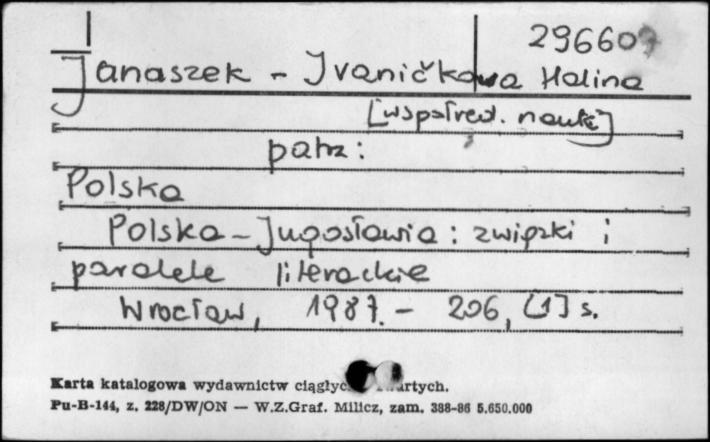 296609
Janaszek - Ivaničkova Halina
[współred. nauk.]
patrz:
Polska
Polska - Jugosławia: związki i
paralele literackie
Wrocław, 1987. - 206, [1] s.
Karta katalogowa wydawnictw
Pu-B-144, z. 228/DW/ON — W.Z.Graf. Milicz, zam. 388-86 5.650.000